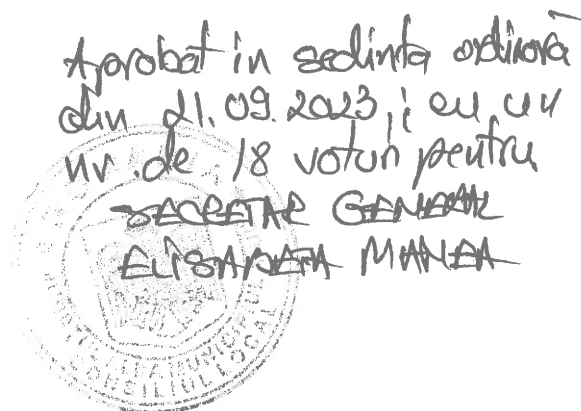 Aprobat in sedinta ordinară
din 21.09.2023, cu un
nr. de 18 voturi pentru
SECRETAR GENERAL
ELISABETA MANEA
CONSILIUL LOCAL